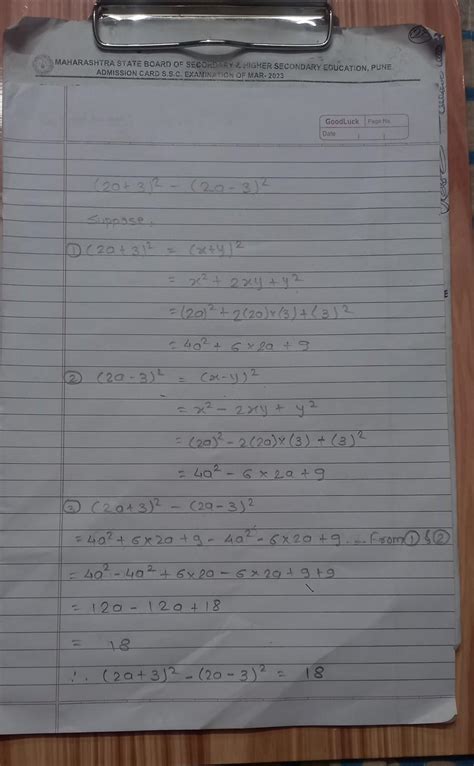 MAHARASHTRA STATE BOARD OF SECONDARY & HIGHER SECONDARY EDUCATION, PUNE
ADMISSION CARD S.S.C. EXAMINATION OF MAR- 2023
GoodLuck Page No.
Date
(2a+3)² - (2a-3)²
Suppose,
① (2a+3)² = (x+y)²
= x² + 2xy + y²
= (2a)² + 2(2a)×(3) + (3)²
= 4a² + 6×2a + 9
② (2a-3)² = (x-y)²
= x² - 2xy + y²
= (2a)² - 2(2a)×(3) + (3)²
= 4a² - 6×2a + 9
③ (2a+3)² - (2a-3)²
= 4a² + 6×2a + 9 - 4a² - 6×2a + 9 ... From ① & ②
= 4a² - 4a² + 6×2a - 6×2a + 9 + 9
= 12a - 12a + 18
= 18
∴ (2a+3)² - (2a-3)² = 18